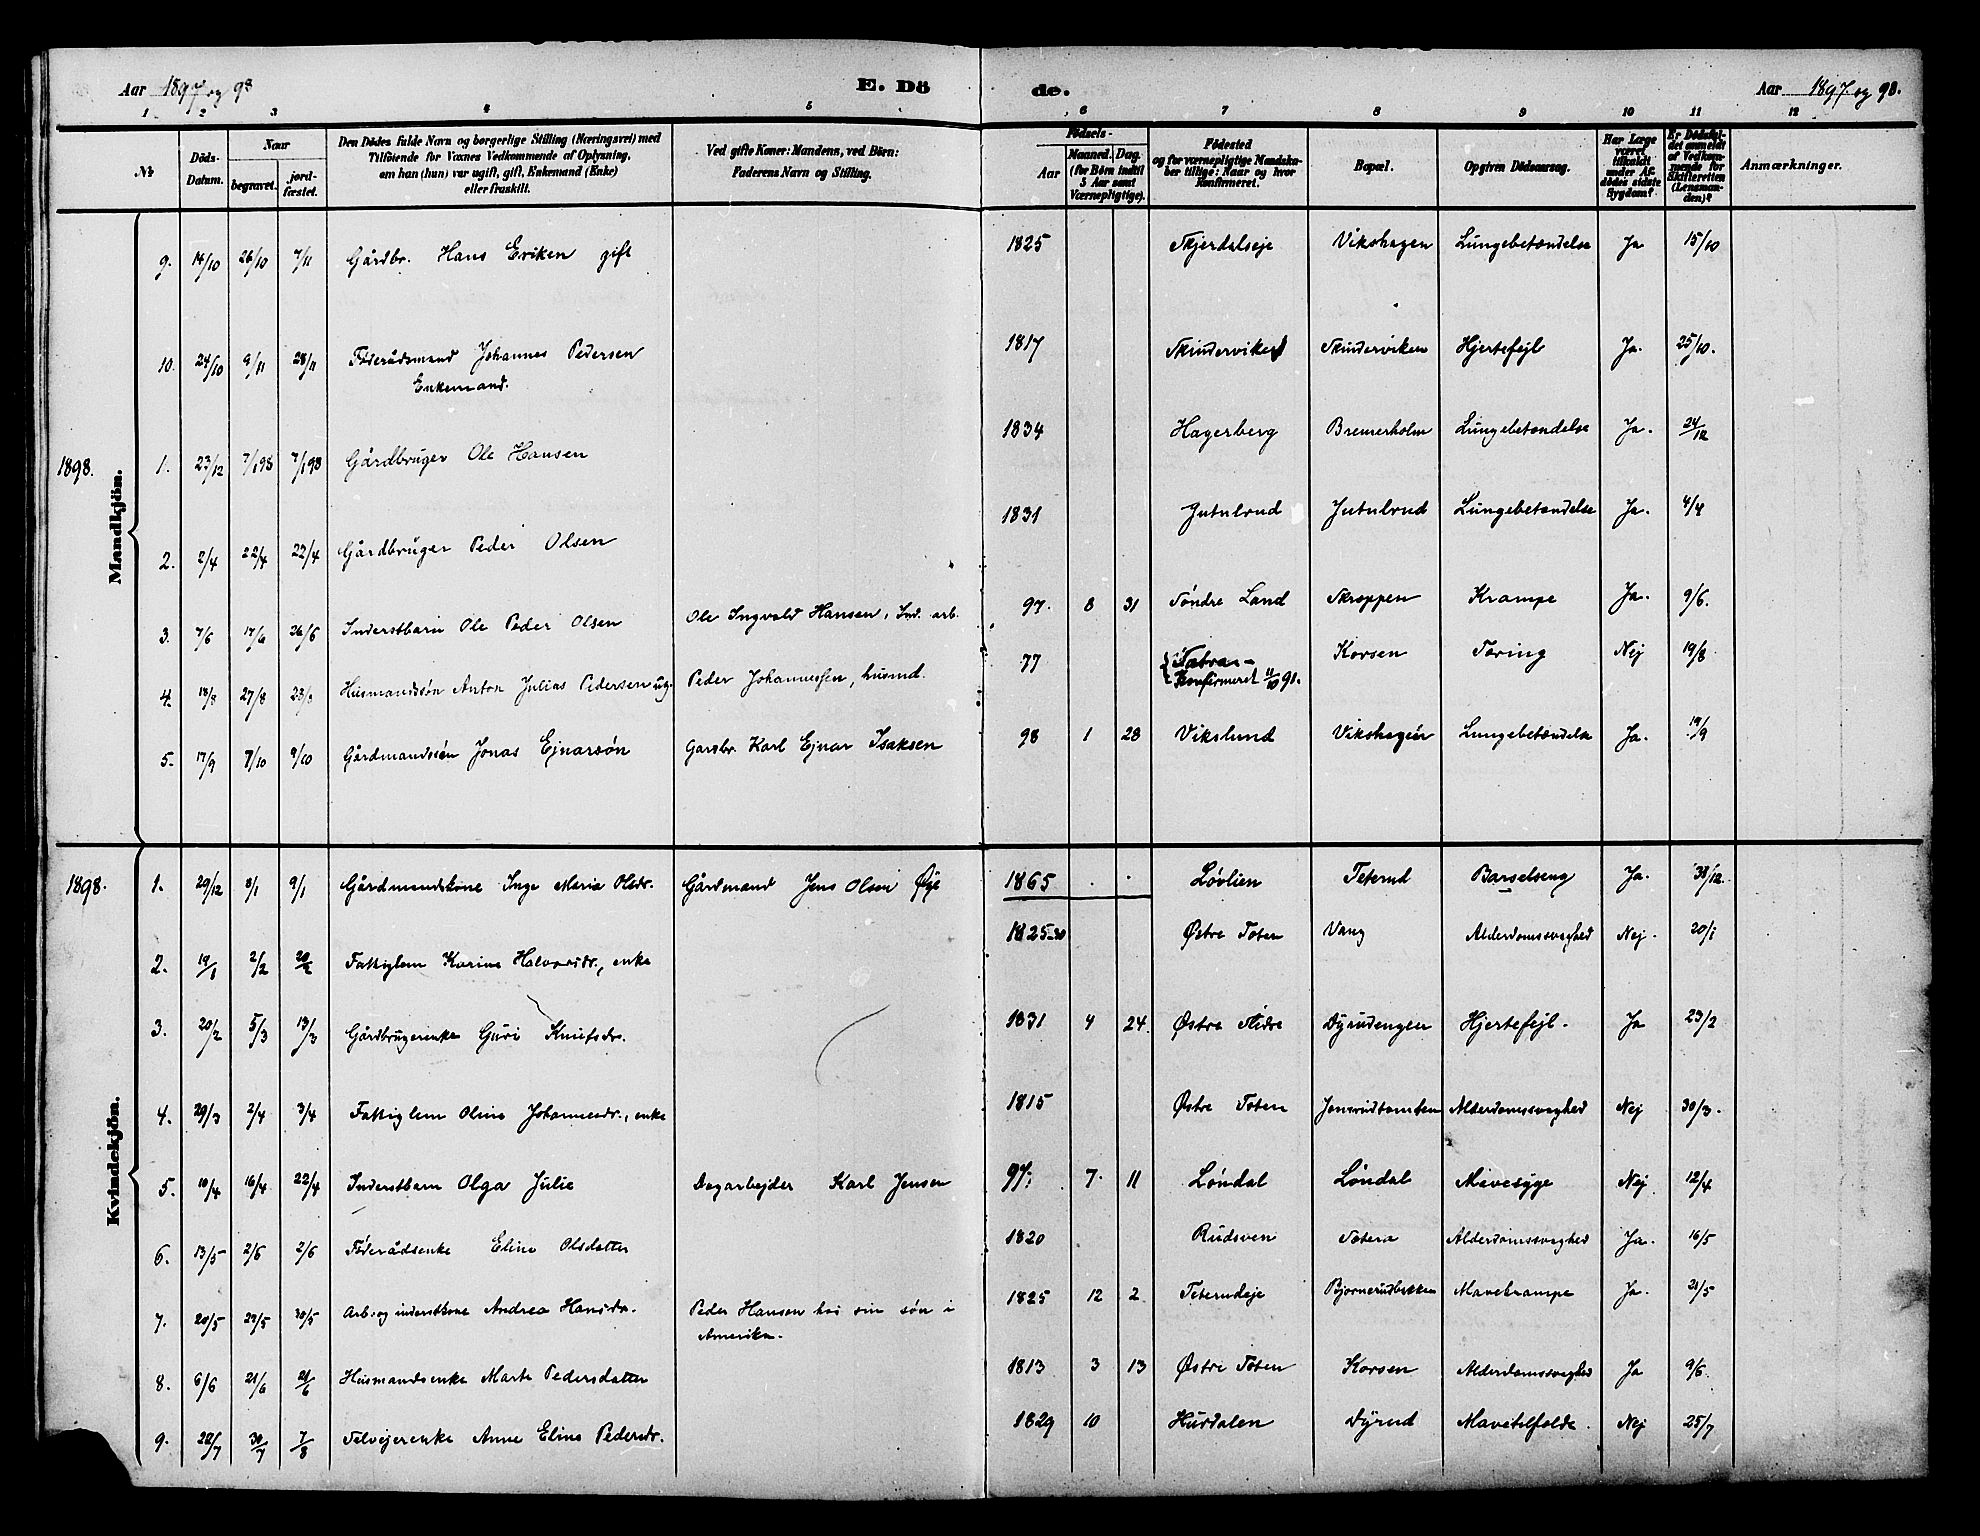 Aar 1897 og 98 E. Dö de. Aar 1897 og 98.
1 2 3 4 5 6 7 8 9 10 11 12
№ Döds-Datum. Naar begravet. jordfæstet. Den Dödes fulde Navn og borgerlige Stilling (Næringsvei) med Tilföiende for Voxnes Vedkommende af Oplysning, om han (hun) var ugift, gift, Enkemand (Enke) eller fraskilt. Ved gifte Koner: Mandens, ved Börn: Faderens Navn og Stilling. Födsels- Aar Maaned. Dag. (for Börn indtil 5 Aar samt Værnepligtige). Födested og for værnepligtige Mandskaber tillige: Naar og hvor Konfirmeret. Bopæl. Opgiven Dödsaarsag. Har Læge været tilkaldt under Afdödes sidste Sygdom? Er Dödsfaldet anmeldt af Vedkommende for Skifteretten (Lensmanden)? Anmærkninger.
Mandkjön.
9. 14/10 26/10 7/11 Gårdbr. Hans Eriken gift 1825 Skjerdalseje Vikshagen Lungebetændelse Ja 15/10
10. 24/10 9/11 28/11 Føderådsmand Johannes Pedersen Enkemand. 1817 Skinderviken Skinderviken Hjertefejl Ja. 25/10.
1898. 1. 23/12 7/1 98 7/1 98 Gårdbruger Ole Hansen 1834 Hagerberg Bremerholm Lungebetændelse Ja. 24/12
2. 2/4 22/4 22/4 Gårdbruger Peder Olsen 1831 Jutulrud Jutulrud Lungebetændelse Ja. 4/4
3. 7/6 17/6 26/6 Inderstbarn Ole Peder Olsen Ole Ingvald Hansen, Ind. arb. 97. 8 31 Søndre Land Skroppen Krampe Ja. 9/6.
4. 18/8 27/8 23/8 Husmandssøn Anton Julius Pedersen ug. Peder Johannessen, husmd. 77 Konfirmeret 11/10 91. Korsen Tæring Nej 19/8
5. 17/9 7/10 9/10 Gårdmandssøn Jonas Ejnarsøn Gardbr. Karl Ejnar Isaksen 98 1 28 Vikslund Vikshagen Lungebetændelse Ja. 19/9
Kvindekjön.
1898. 1. 29/12 8/1 9/1 Gårdmandskone Inge Maria Olsdr. Gårdmand Jens Olsen Øye 1865 . . Løvlien Teterud Barselseng Ja. 31/12.
2. 19/1 2/2 20/2 Fattiglem Karine Halvorsdr., enke 1825-30 Østre Toten Vang Alderdomssvaghed Nej. 20/1
3. 20/2 5/3 13/3 Gårdbrugerenke Guri Knutsdr. 1831 4 24. Østre Slidre Dyrudengen Hjertefejl. Ja 23/2
4. 29/3 2/4 3/4 Fattiglem Oline Johannesdr., enke 1815 Østre Toten Jonsrudtomten Alderdomssvaghed Nej 30/3.
5. 10/4 16/4 22/4 Inderstbarn Olga Julie Dagarbejder Karl Jensen 97. 7. 11 Løndal Løndal Mavesyge Nej 12/4
6. 13/5 2/6 2/6 Føderådsenke Eline Olsdatter 1820 Rudsven Totera Alderdomssvaghed Ja. 16/5
7. 20/5 29/5 30/5 Arb. og inderstkone Andrea Hansdr. Peder Hansen hos sin søn i Amerika. 1825 12 2 Teterudeje Bjørnerudbækken Mavekrampe Ja. 21/5
8. 6/6 21/6 21/6 Husmandsenke Marte Pedersdatter 1813 3 13 Østre Toten Korsen Alderdomssvaghed Ja 9/6.
9. 22/7 30/7 7/8 Selvejerenke Anne Eline Pedersdr. 1829 10 Hurdalen Dyrud Mavetilfælde. Nej 25/7